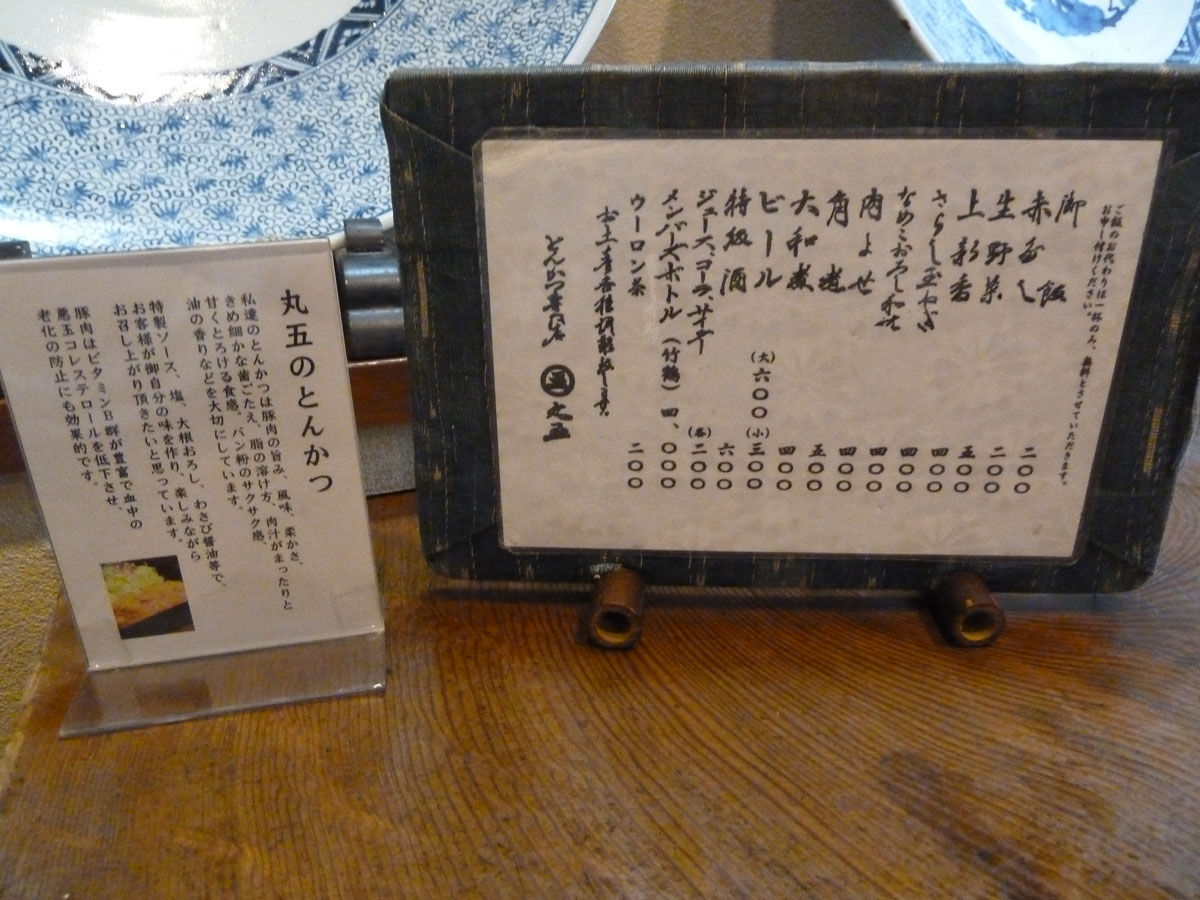 ご飯のお代わりは一杯のみ、無料とさせていただきます。
お申し付けください。
御飯 二〇〇
赤だし 二〇〇
生野菜 五〇〇
上新香 四〇〇
さらし玉ねぎ 四〇〇
なめこおろし和え 四〇〇
肉よせ 四〇〇
角煮 五〇〇
大和煮 四〇〇
ビール (大)六〇〇 (小)三〇〇
特級酒 六〇〇
ジュース、コーラ、サイダー (各)二〇〇
メンバーズボトル(竹鶴) 四、〇〇〇
ウーロン茶 二〇〇
とんかつ専門店 丸五
丸五のとんかつ
私達のとんかつは豚肉の旨み、風味、柔かさ、
きめ細かな歯ごたえ、脂の溶け方、肉汁がまったりと
甘くとろける食感。パン粉のサクサク感、
油の香りなどを大切にしています。
特製ソース、塩、大根おろし、わさび醤油等で、
お客様が御自分の味を作り、楽しみながら
お召し上がり頂きたいと思っています。
豚肉はビタミンB群が豊富で血中の
悪玉コレステロールを低下させ、
老化の防止にも効果的です。